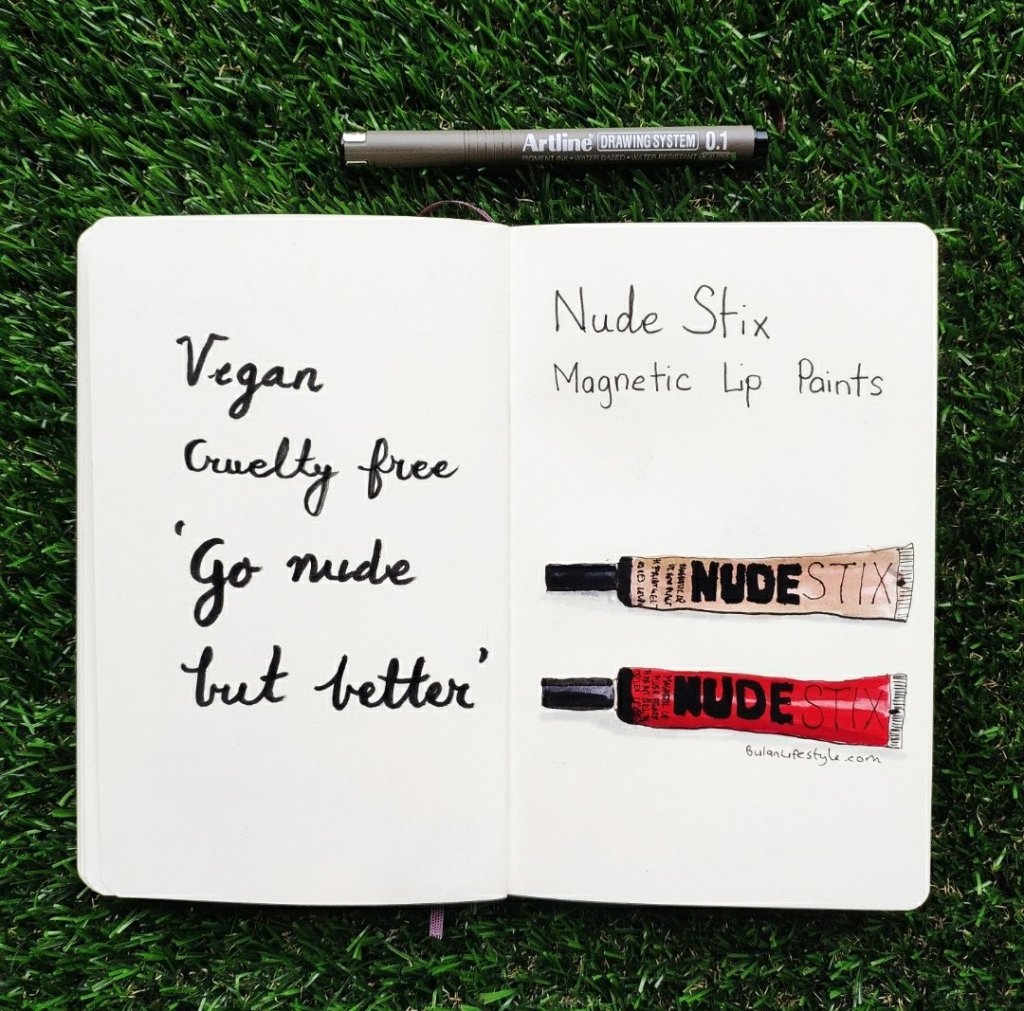 Artline DRAWING SYSTEM 0.1
PIGMENT INK • WATER BASED • WATER RESISTANT
Vegan
Cruelty free
'Go nude
but better'
Nude Stix
Magnetic Lip Paints
NUDESTIX
NUDESTIX
BulanLifestyle.com